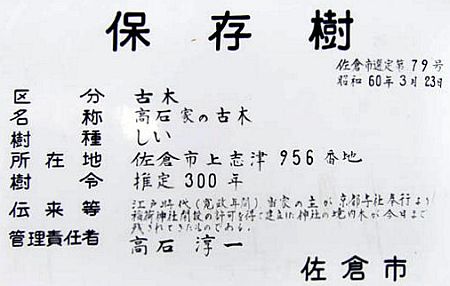 保存樹
佐倉市選定第79号
昭和60年3月23日
区分 古木
名称 高石家の古木
樹種 しい
所在地 佐倉市上志津956番地
樹令 推定300年
伝来等 江戸時代(寛政年間)当家の主が京都寺社奉行より
稲荷神社開設の許可を得て建立した神社の境内木が今日まで
残されてきたものである。
管理責任者 高石淳一
佐倉市